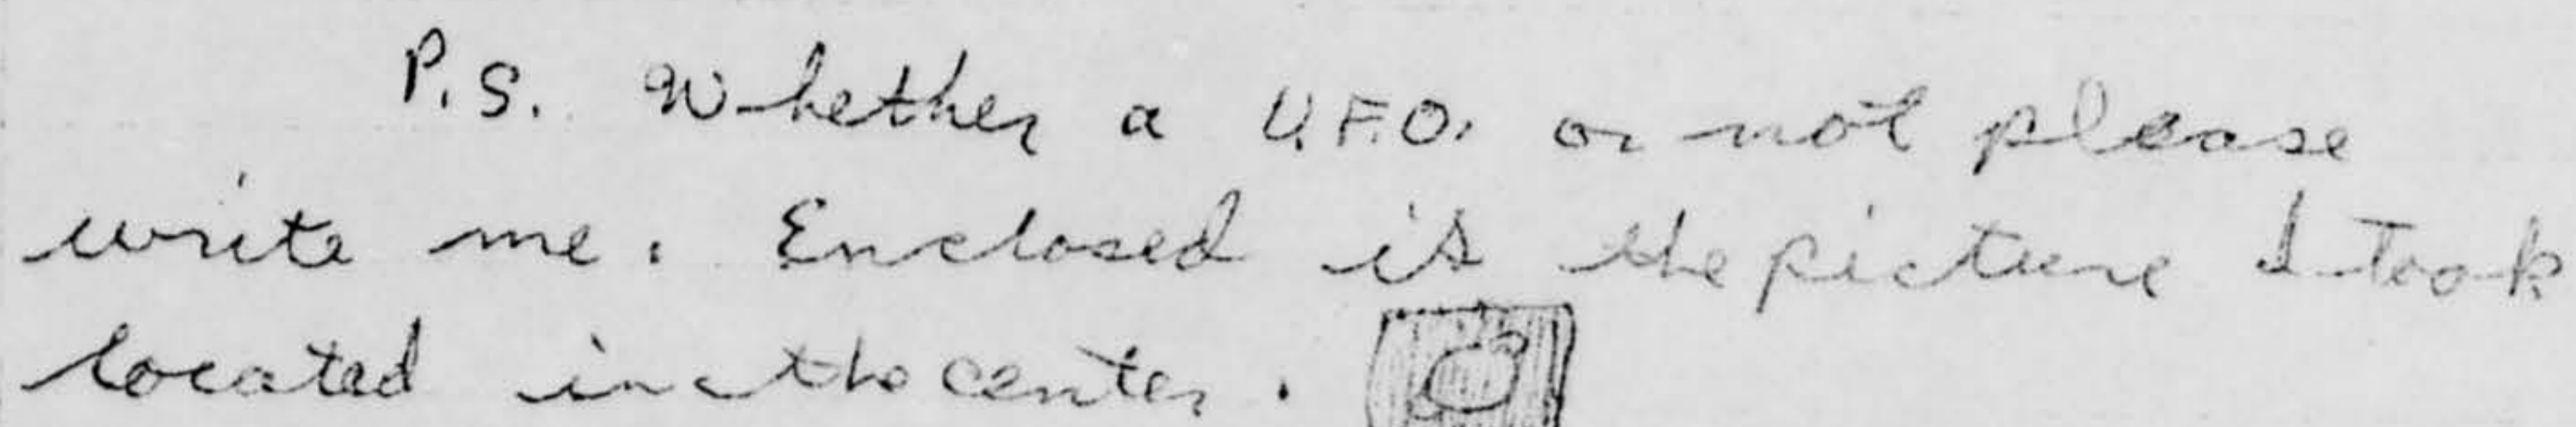 P.S. Whether a U.F.O. or not please
write me. Enclosed is the picture I took
located in the center.